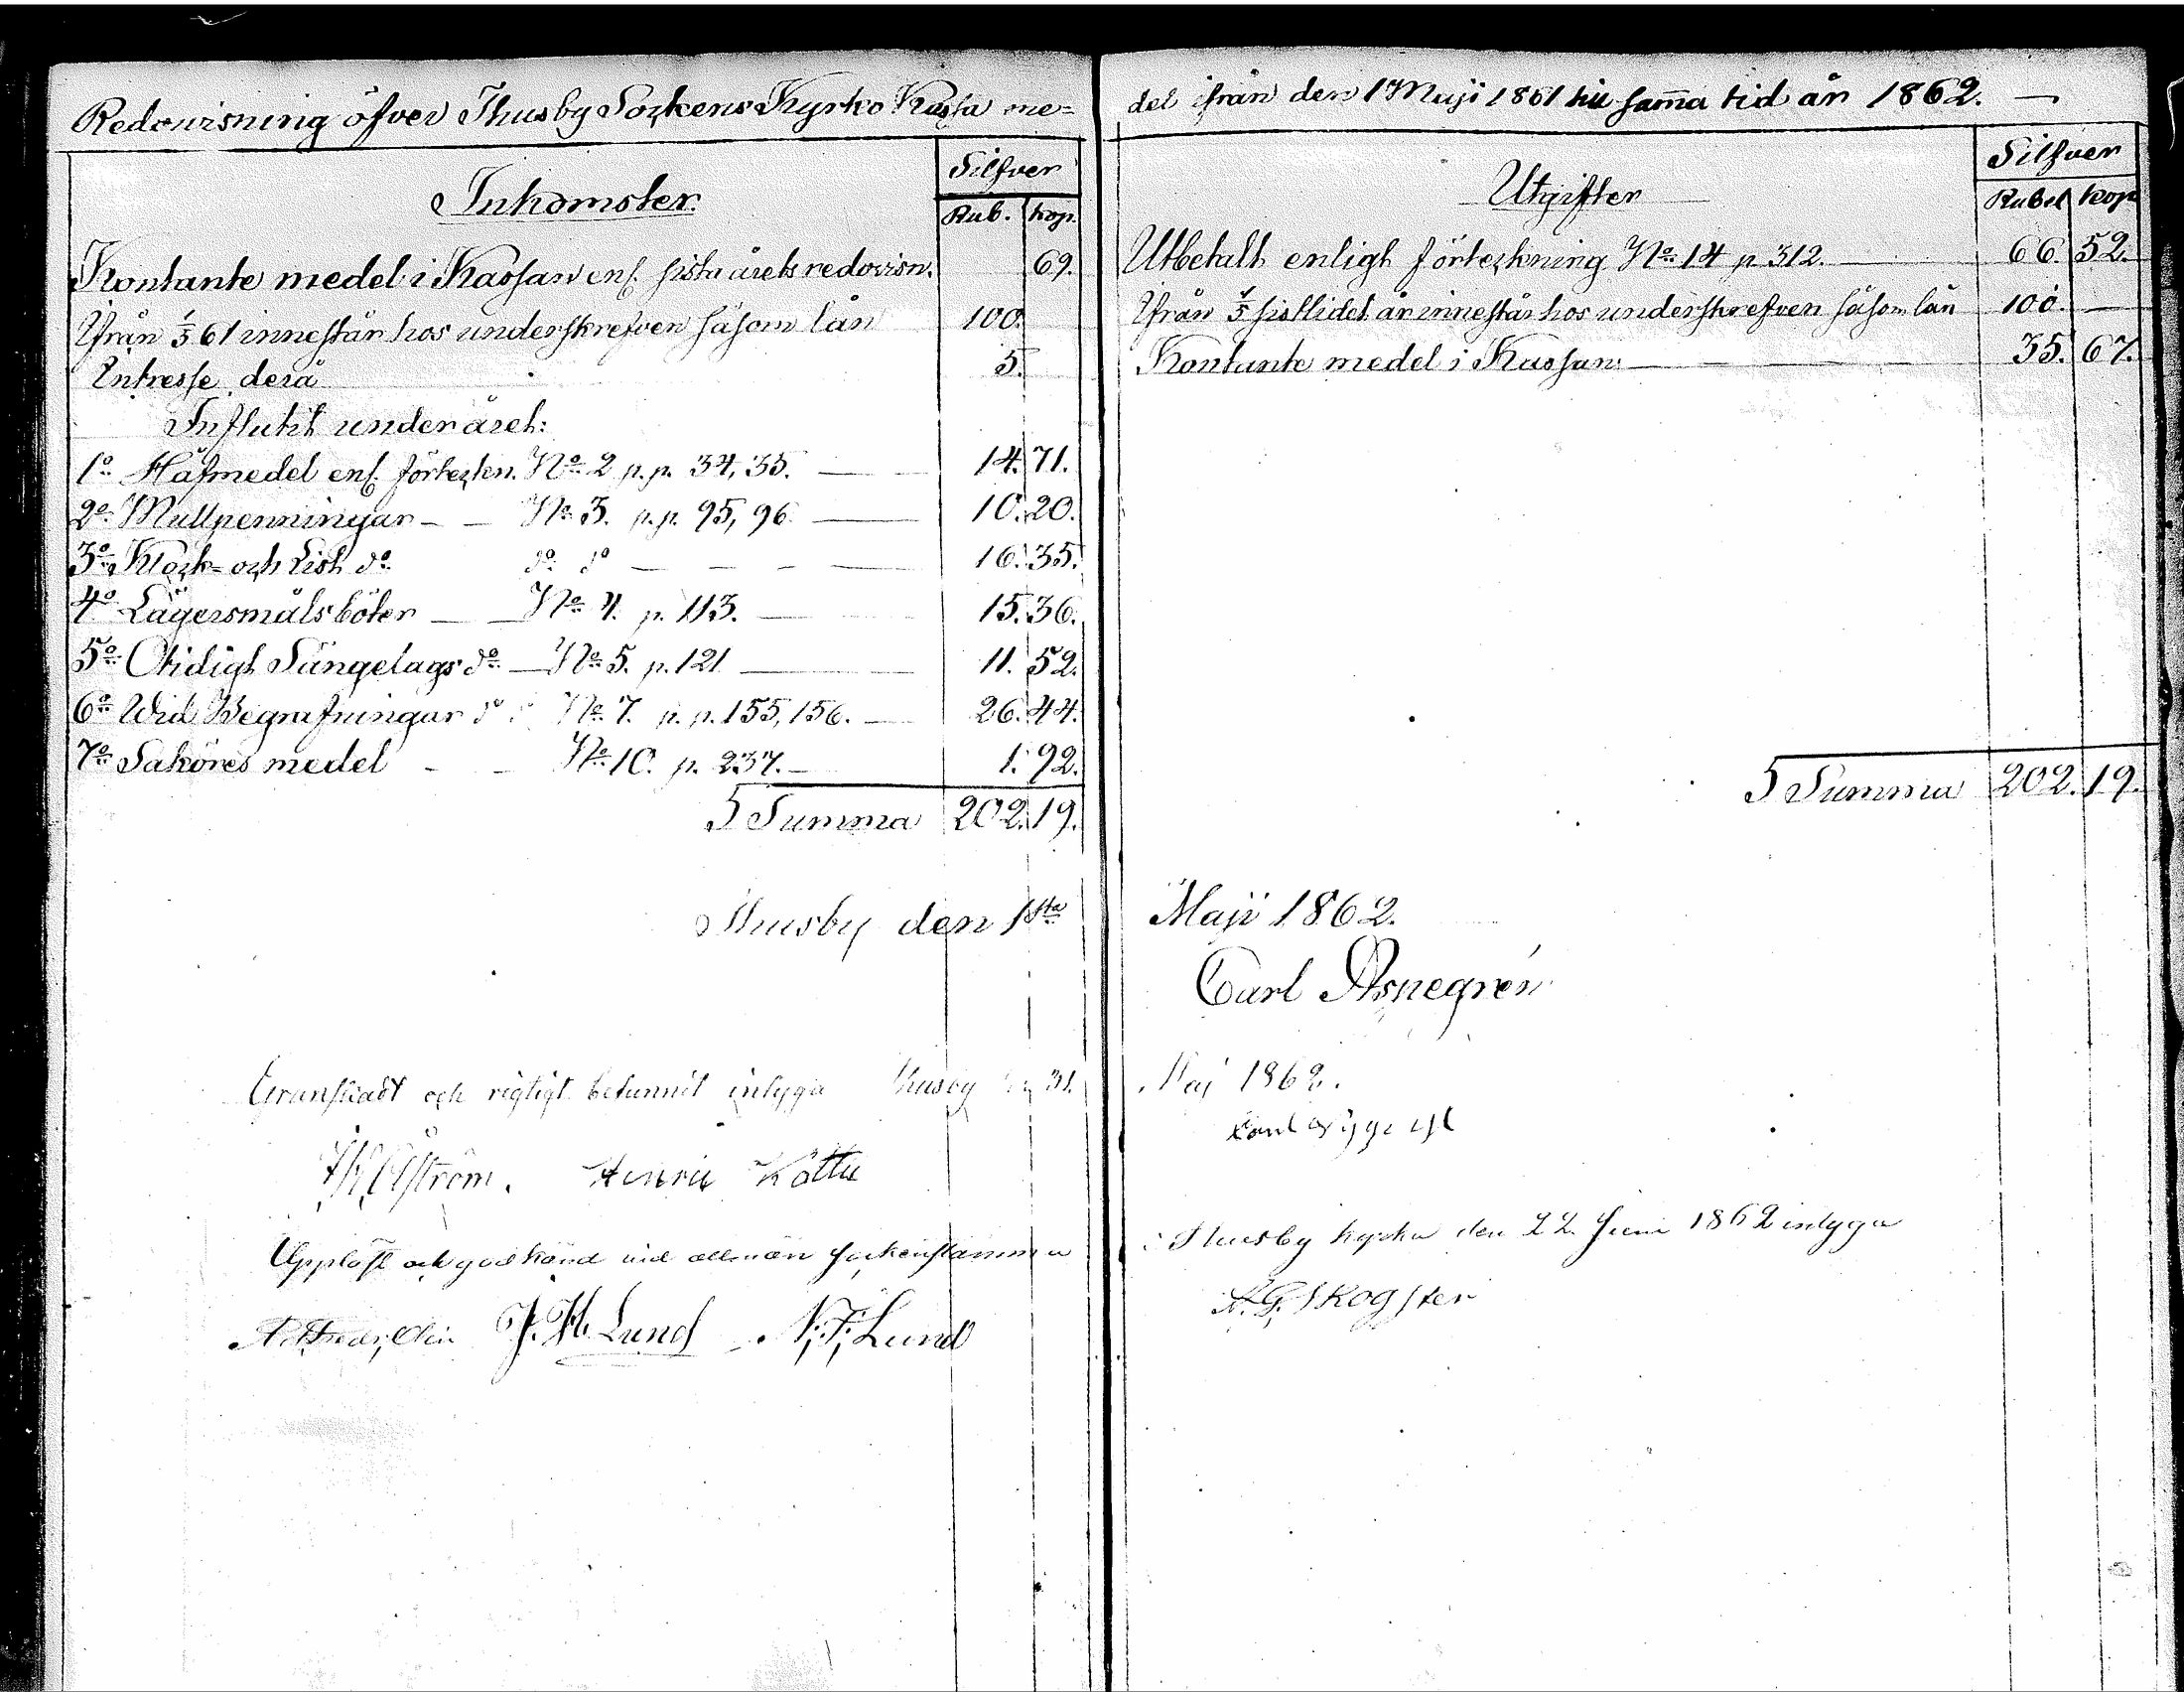 Redovisning öfver Thusby Sockens Kyrko Kassa me=
Inkomster.
Silfver
Rub. kop.
Kontante medel i Kassan enl. sista årets redovisn. 69.
Ifrån 1/5 61 innestår hos underskrefven såsom lån 100.
Intresse derå 5.
Influtit under året:
1o Håfmedel enl. förteckn. No 2 p.p. 34, 35. — 14. 71.
2o Mullpenningar — — No 3. p.p. 95, 96. — 10. 20.
3o Klock- och List do do do — — — 16. 35.
4o Lägersmålsböter — — No 4. p. 113. — 15. 36.
5o Otidigt Sängelags do — No 5. p. 121 — 11. 52.
6o Wid Begrafningar do No 7. p.p. 155, 156. — 26. 44.
7o Saköres medel - - No 10. p. 237. — 1. 92.
Summa 202. 19.
Thusby den 1sta
Granskadt och rigtigt befunnit intyga Thusby 31.
Henric Kåttu
Uppläst och godkänd vid allmän sockenstämma
J. H. Lund N. F. Lund
del ifrån den 1 Maji 1861 till samma tid år 1862. —
Utgifter
Silfver
Rubel kop
Utbetalt enligt förteckning No 14 p 312. — 66. 52.
Ifrån 1/5 sistlidet år innestår hos underskrefven såsom lån 100. —
Kontante medel i Kassan — 35. 67.
Summa 202. 19.
Maji 1862.
Carl Asnegrén
Maj 1862.
i Thusby kyrka den 22 Juni 1862 intyga
K. G. Skogster